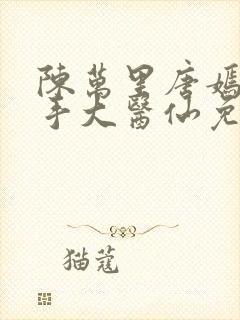 陳萬里唐嫣
手大醫仙免
猫蔻